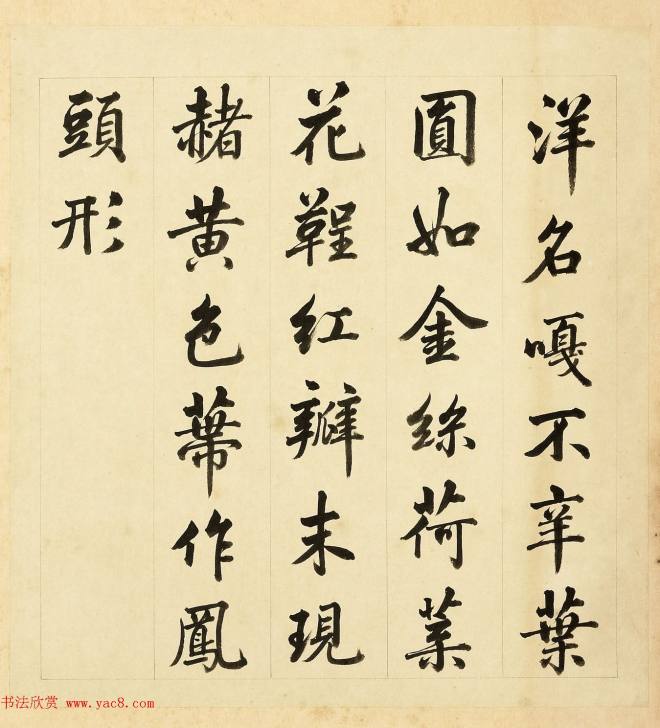 洋名嘎不辛葉
圓如金絲荷葉
花鞓紅瓣末現
赭黄色蔕作鳳
頭形
书法欣赏 www.yac8.com